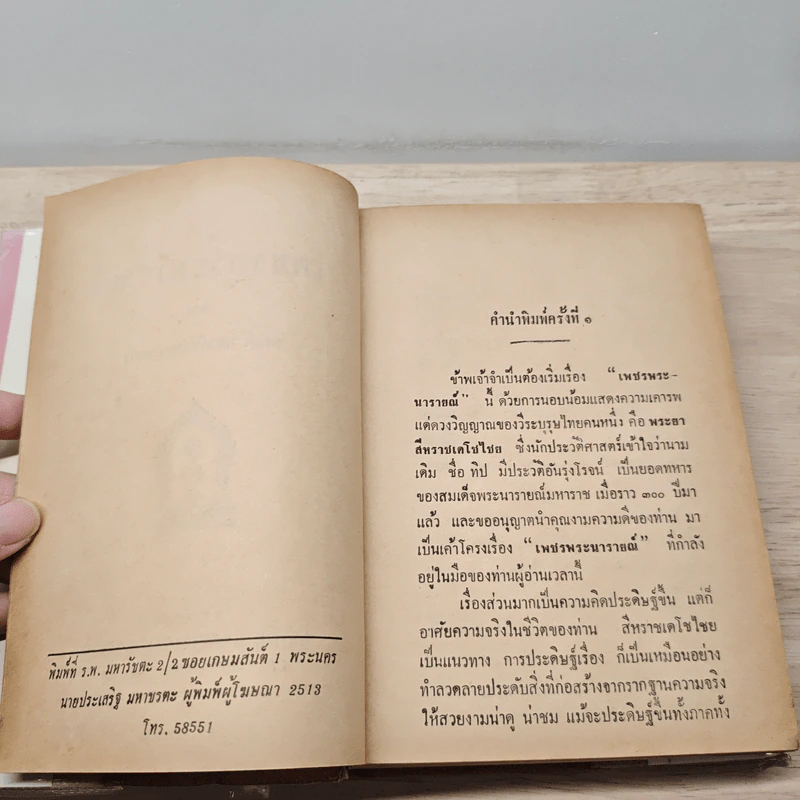 พิมพ์ที่ ร.พ. มหารัชตะ 2/2 ซอยเกษมสันต์ 1 พระนคร
นายประเสริฐ มหาขรตะ ผู้พิมพ์ผู้โฆษณา 2513
โทร. 58551
คำนำพิมพ์ครั้งที่ ๑
ข้าพเจ้าจำเป็นต้องเริ่มเรื่อง “เพชรพระ-
นารายณ์” นี้ ด้วยการนอบน้อมแสดงความเคารพ
แต่ดวงวิญญาณของวีระบุรุษไทยคนหนึ่ง คือ พระยา
สีหราชเดโชไชย ซึ่งนักประวัติศาสตร์เข้าใจว่านาม
เดิม ชื่อ ทิป มีประวัติอันรุ่งโรจน์ เป็นยอดทหาร
ของสมเด็จพระนารายณ์มหาราช เมื่อราว ๓๐๐ ปีมา
แล้ว และขออนุญาตนำคุณงามความดีของท่าน มา
เป็นเค้าโครงเรื่อง “เพชรพระนารายณ์” ที่กำลัง
อยู่ในมือของท่านผู้อ่านเวลานี้
เรื่องส่วนมากเป็นความคิดประดิษฐ์ขึ้น แต่ก็
อาศัยความจริงในชีวิตของท่าน สีหราชเดโชไชย
เป็นแนวทาง การประดิษฐ์เรื่อง ก็เป็นเหมือนอย่าง
ทำลวดลายประดับสิ่งที่ก่อสร้างจากรากฐานความจริง
ให้สวยงามน่าดู น่าชม แม้จะประดิษฐ์ขึ้นทั้งภาคทั้ง